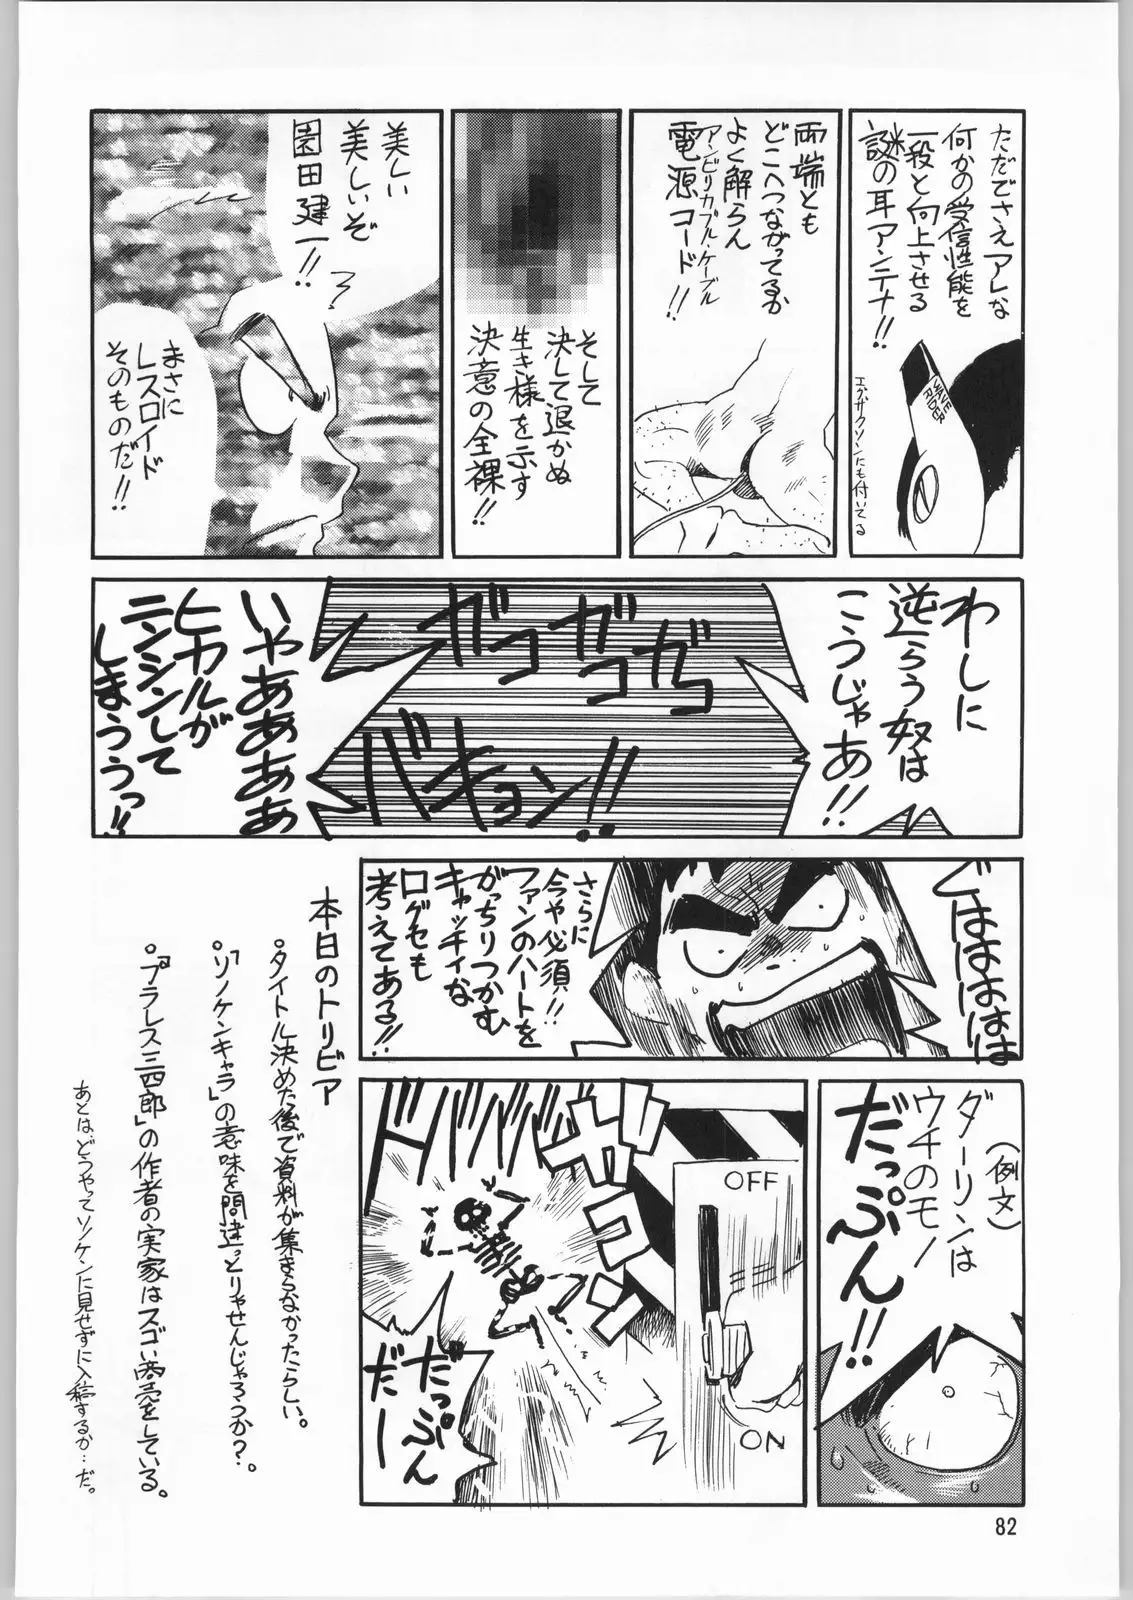 ただでさえアレな
何かの受信性能を
一段と向上させる
謎の耳アンテナ!!
WAVE
RIDER
エグザクソンにも付いてる
両端とも
どこへつながってるか
よく解らん
アンビリカブル・ケーブル
電源コード!!
そして
決して退かぬ
生き様を示す
決意の全裸!!
美しい
美しいぞ
園田健一!!
まさに
レスロイド
そのものだ!!
わしに
逆らう奴は
こうじゃあ!!
ガコ
ガコ
ガコ
バキョン!!
いやあああああ
ヒカルが
ニンシンして
しまううっ!!
どはははは
さらに
今や必須!!
ファンのハートを
がっちりつかむ
キャッチィな
ログセも
考えてある!!
(例文)
ダーリンは
ウチのモノ
だっぷん!!
OFF
ON
ガコン
ドババババ
だっぷん
だー
本日のトリビア
。タイトル決めた後で資料が集まらなかったらしい。
。「ソノケンキャラ」の意味を間違っとりゃせんじゃろうか?。
。「プラレス三四郎」の作者の実家はスゴい商売をしている。
あとはどうやってソノケンに見せずに入稿するか…だ。
82